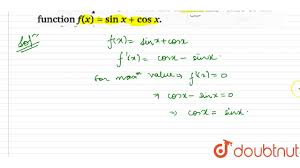 function f(x) = sin x + cos x.
Solⁿ
f(x) = sinx + cosx
f'(x) = cosx - sinx.
for maxᵐ value → f'(x) = 0
→ cosx - sinx = 0
→ cosx = sinx.
doubtnut